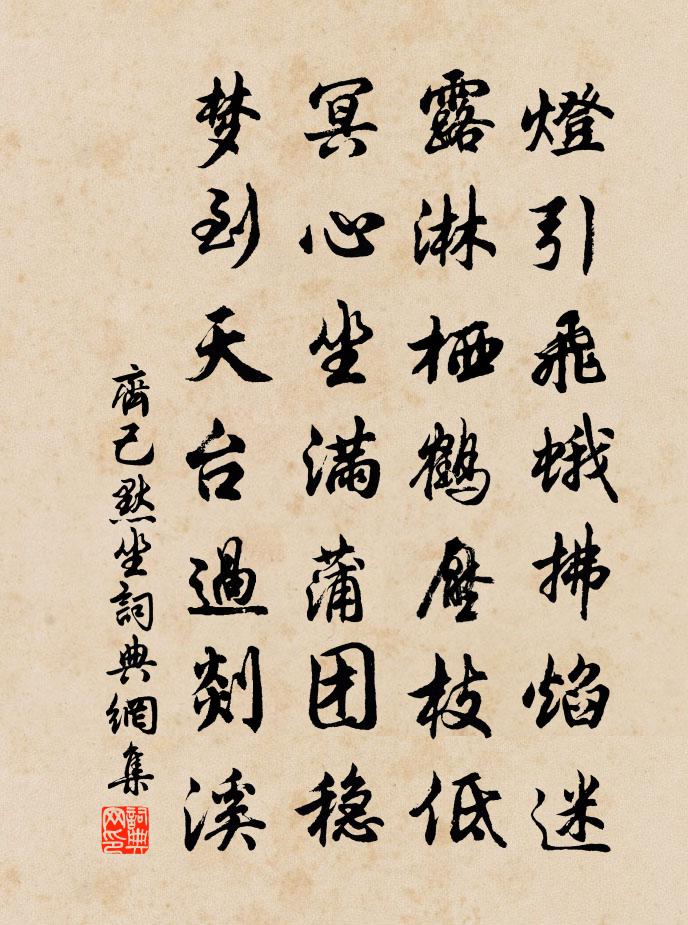 燈引飛蛾拂焰迷
露淋栖鶴壓枝低
冥心坐滿蒲团穏
梦到天台過剡溪
齊己默坐詞典網集
詞典网印